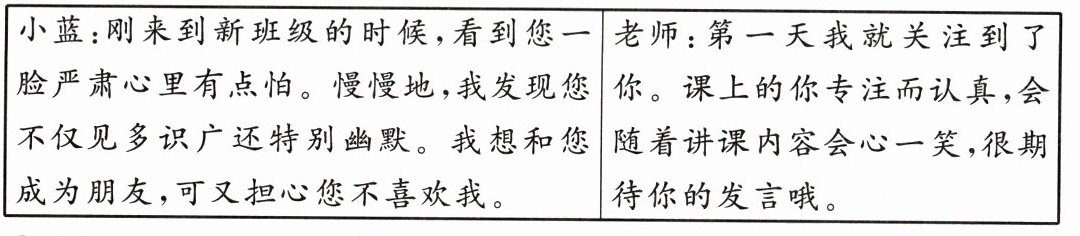 小蓝:刚来到新班级的时候,看到您一
脸严肃心里有点怕。慢慢地,我发现您
不仅见多识广还特别幽默。我想和您
成为朋友,可又担心您不喜欢我。
老师:第一天我就关注到了
你。课上的你专注而认真,会
随着讲课内容会心一笑,很期
待你的发言哦。